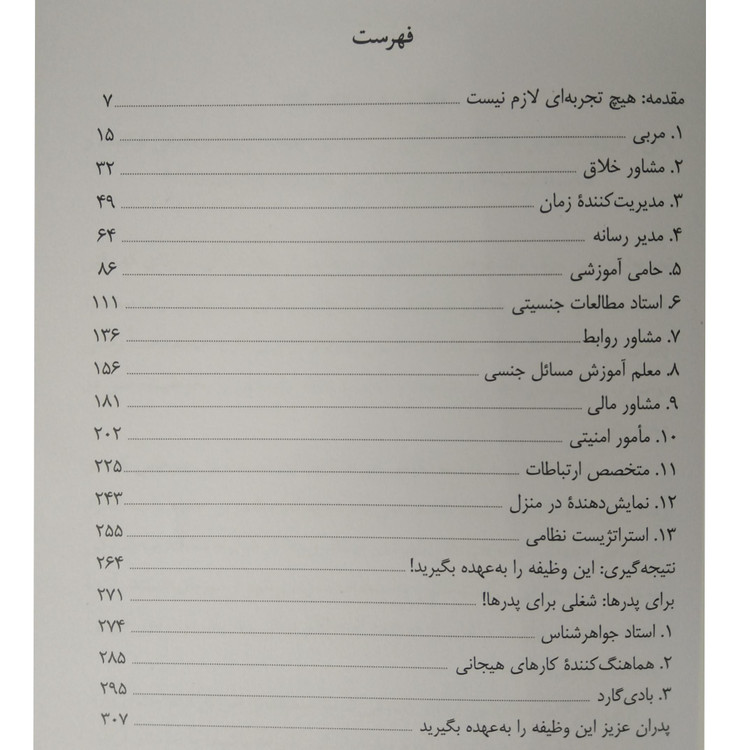 فهرست
مقدمه: هیچ تجربه‌ای لازم نیست ۷
۱. مربی ۱۵
۲. مشاور خلاق ۳۲
۳. مدیریت‌کنندهٔ زمان ۴۹
۴. مدیر رسانه ۶۴
۵. حامی آموزشی ۸۶
۶. استاد مطالعات جنسیتی ۱۱۱
۷. مشاور روابط ۱۳۶
۸. معلم آموزش مسائل جنسی ۱۵۶
۹. مشاور مالی ۱۸۱
۱۰. مأمور امنیتی ۲۰۲
۱۱. متخصص ارتباطات ۲۲۵
۱۲. نمایش‌دهندهٔ در منزل ۲۴۳
۱۳. استراتژیست نظامی ۲۵۵
نتیجه‌گیری: این وظیفه را به‌عهده بگیرید! ۲۶۴
برای پدرها: شغلی برای پدرها! ۲۷۱
۱. استاد جواهرشناس ۲۷۴
۲. هماهنگ‌کنندهٔ کارهای هیجانی ۲۸۵
۳. بادی‌گارد ۲۹۵
پدران عزیز این وظیفه را به‌عهده بگیرید ۳۰۷